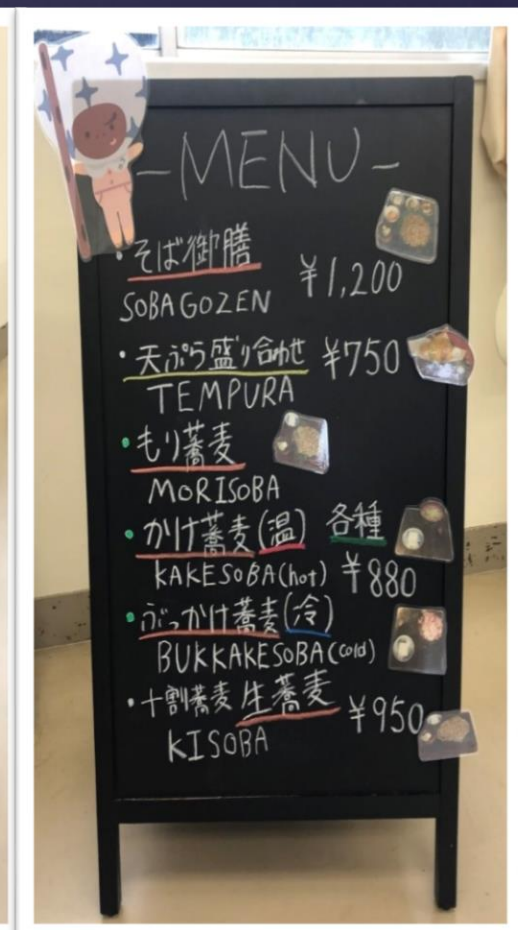 -MENU-
・そば御膳 ¥1,200
SOBAGOZEN
・天ぷら盛り合わせ ¥750
TEMPURA
・もり蕎麦
MORISOBA
・かけ蕎麦(温) 各種
KAKESOBA(hot) ¥880
・ぶっかけ蕎麦(冷)
BUKKAKESOBA(cold)
・十割蕎麦 生蕎麦 ¥950
KISOBA